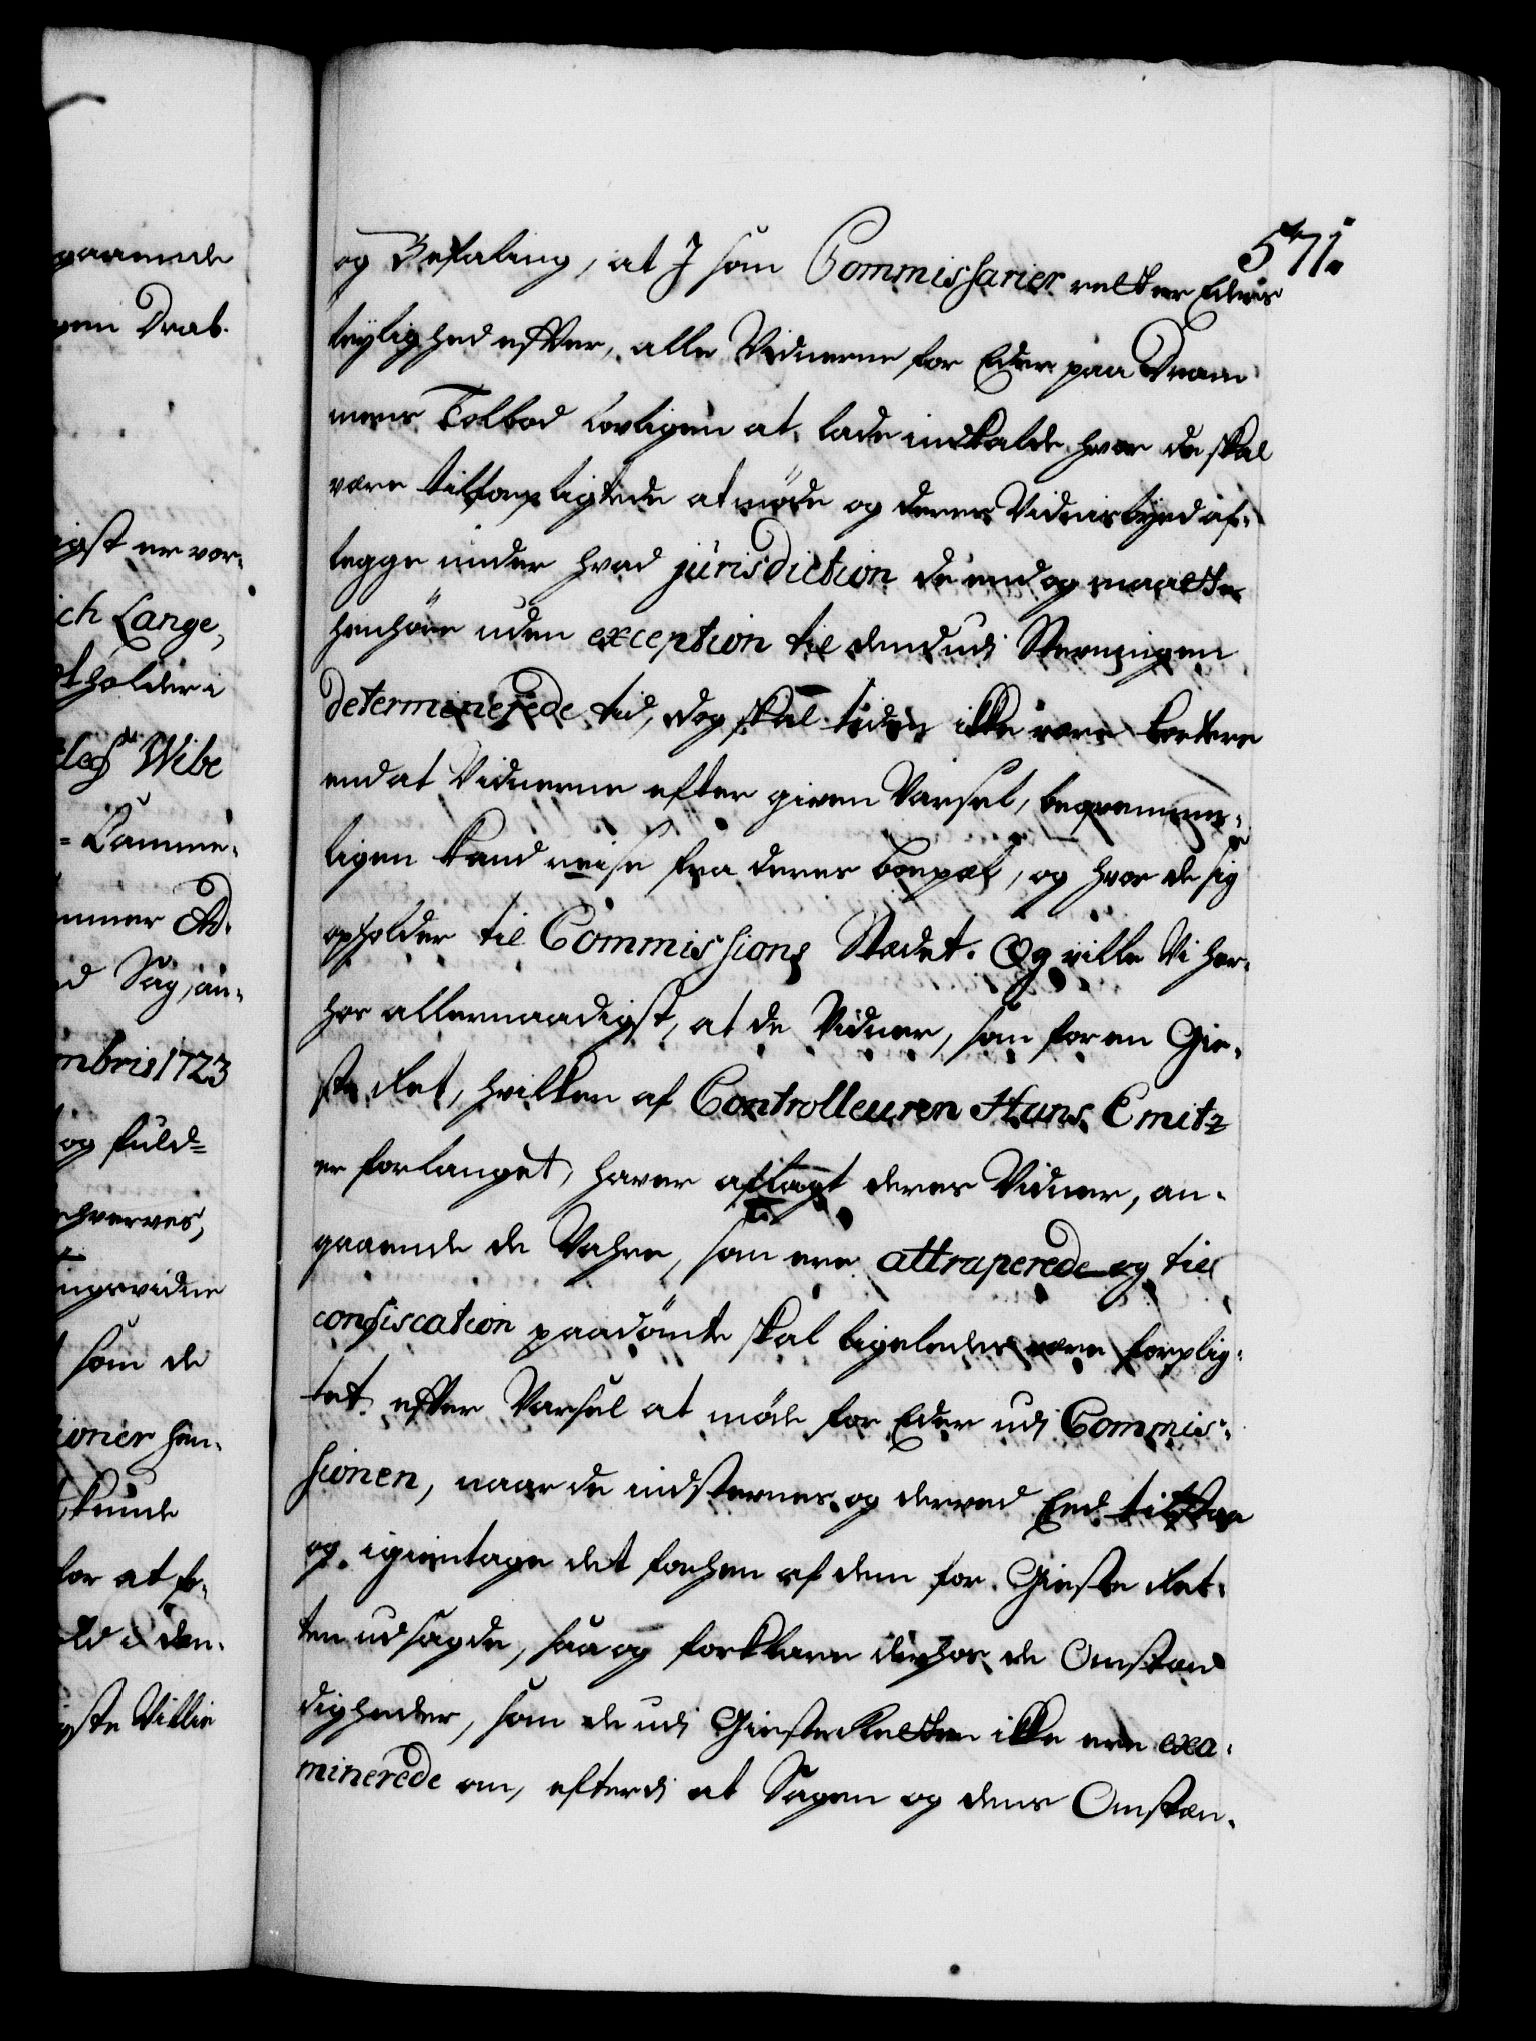 571.
og Befaling, at I som Commissarier retter Eders
leylighed effter, alle Vidnerne for Eder paa Dram
mens Tolbod lovligen at lade indkalde hvor de skal
være tilforpligtede at møde og deres Vidnisbyrd af-
legge under hvad jurisdiction de end og maatte
henhöre uden exception til dend udj Stevningen
determinerede tid, dog skal tiden ikke være kortere
end at Vidnerne efter given Varsel, beqvemme-
ligen kand reise fra deres boepæl, og hvor de sig
opholder til Commissions Stædet. Og ville Vi her-
hos allernaadigst, at de Vidner, som for en Gie-
ste Ret, hvilken af Controlleuren Hans Emitz
er forlanget, haver aflagt deres Vidner, an-
gaaende de Vahre, som ere attraperede og til
confiscation paadömte skal ligeledes være forplig-
tet effter Varsel at möde for Eder udj Commis-
sionen, naar de indstevnes og derved Eed tilstaae
og igientage det forhen af dem for Gieste Ret-
ten udsagde, saa og forklare derhos de Omstæn
digheder, som de udj Giesteretten ikke ere exa-
minerede om, efterdj at Sagen og dens Omstæn-
gaaende
gen Drab.
igst er vor-
ich Lange,
holder i
Wibe
= Camme-
mmer Ad-
d Sag, an-
mbris 1723
og fuld=
hverves,
ngsvidne
som de
ioner hen-
kunde
for at
ld i den-
gste Villie